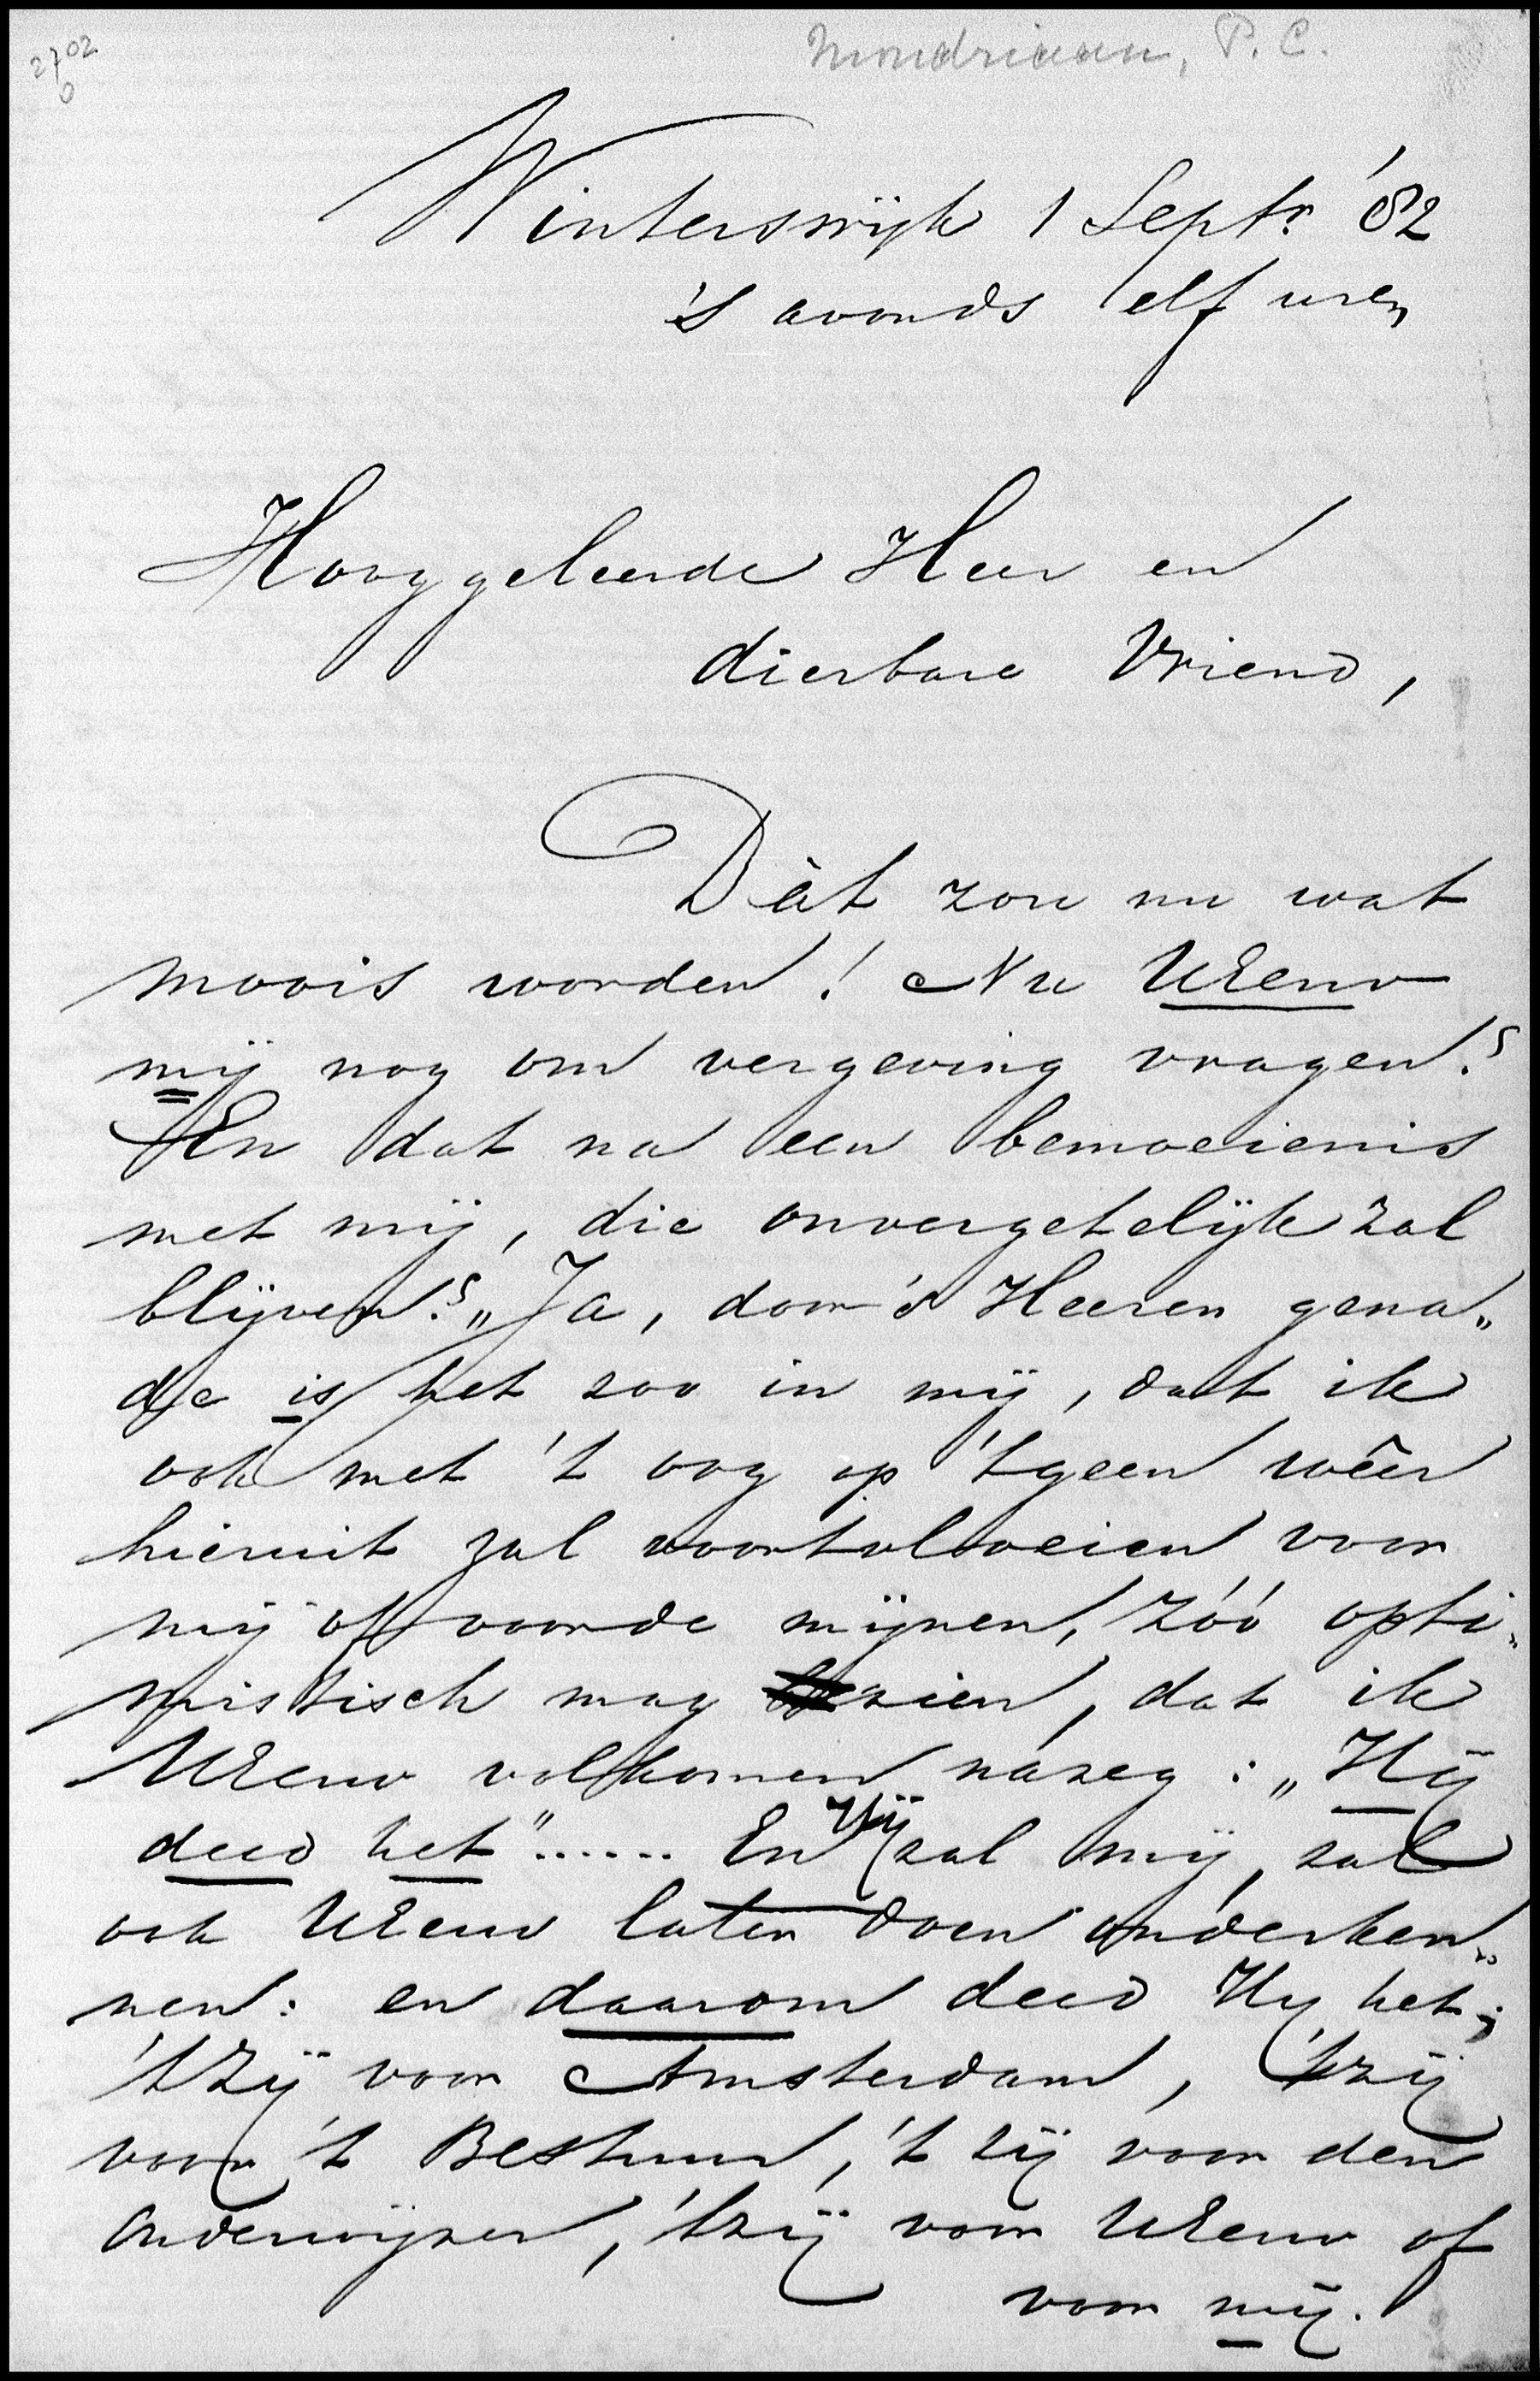 2702
0
Mondriaan, P. C.
Winterswijk 1 Septr. '82
's avonds elf uren
Hooggeleerde Heer en
dierbare Vriend,
Dàt zou nu wat
moois worden! Nu UEenw
mij nog om vergeving vragen?
En dat na een bemoeienis
met mij, die onvergetelijk zal
blijven? „Ja, door 's Heeren gena„
de is het zoo in mij, dat ik
ook met 't oog op 'tgeen wêer
hieruit zal voortvloeien voor
mij of voor de mijnen, zóó opti„
mistisch mag zien, dat ik
UEenw volkomen názeg: „Hij
deed het"...... En Hij zal mij, zal
ook UEenw laten doen onderken„
nen: en daarom deed Hij het;
't zij voor Amsterdam, 't zij
voor 't Bestuur, 't zij voor den
Onderwijzer, 't zij voor UEenw of
voor mij.